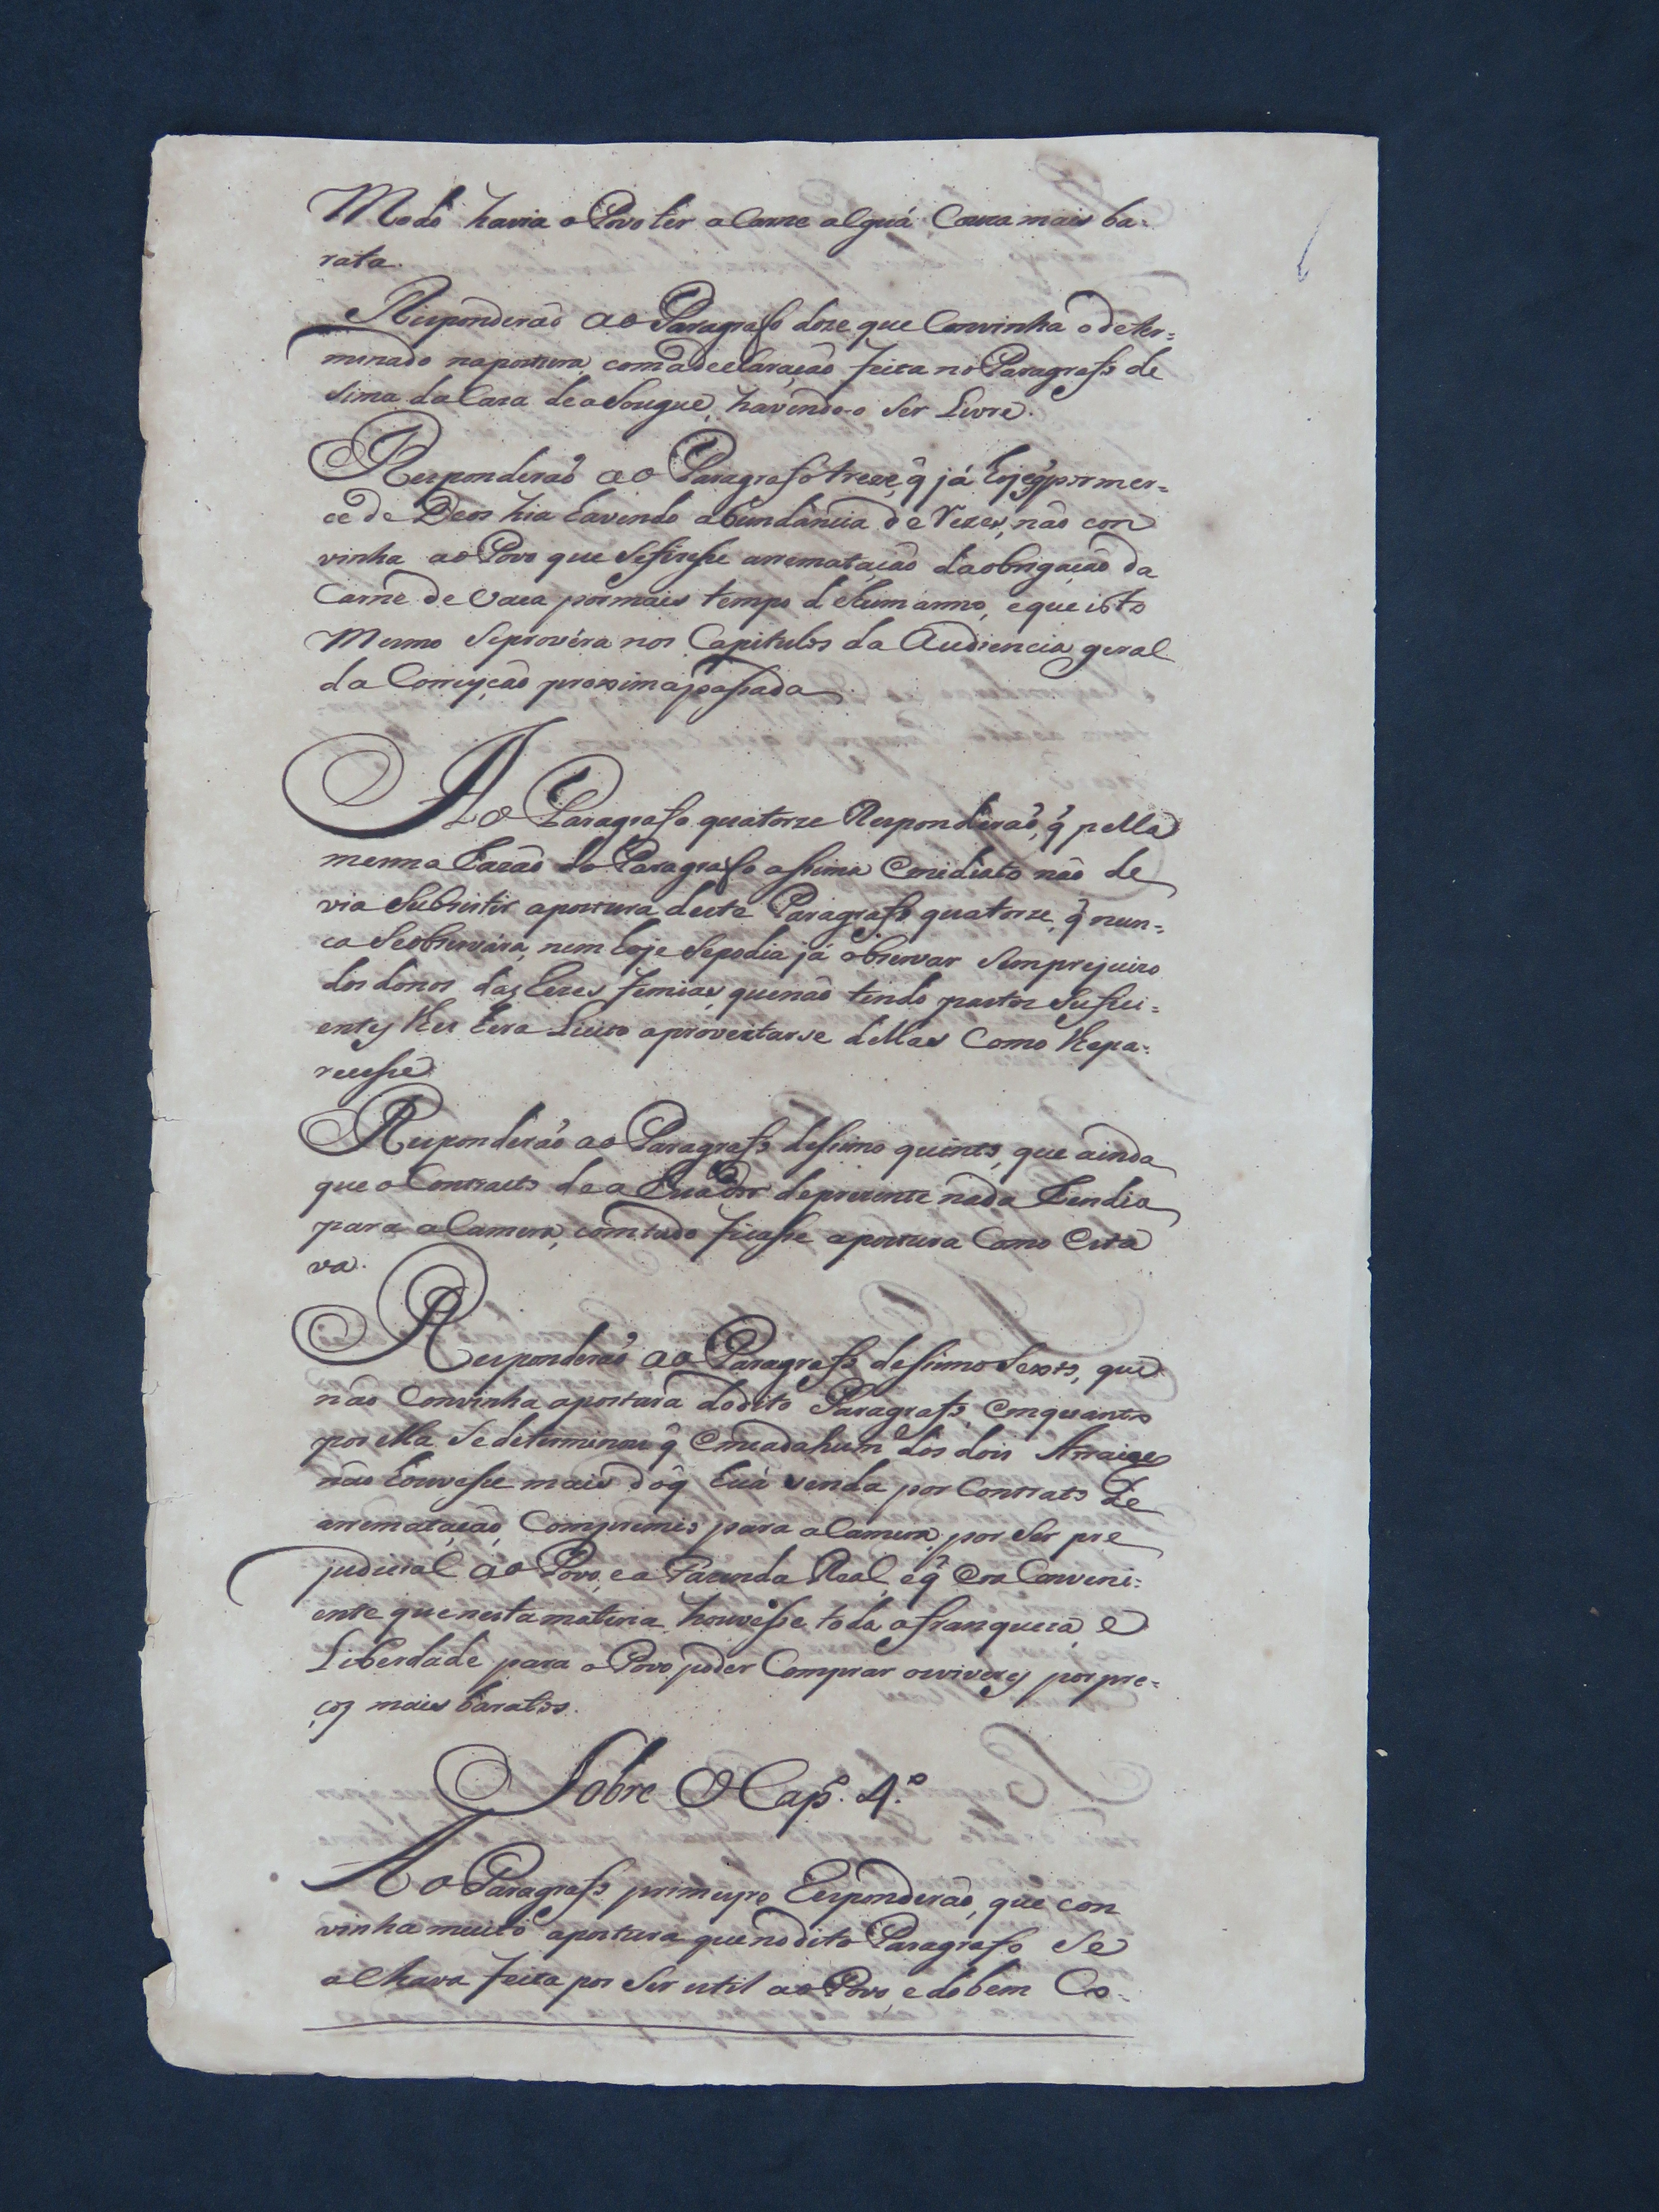 Modo havia o Povo ter a Carne alguá Couza mais ba-
rata.
Responderaõ ao Paragrafo doze que Convinha o deter=
minado napostura, comadeclaraçaõ feita no Paragrafo de
sima da Caza deasougue, havendo-o Ser Livre.
Responderaõ ao Paragrafo treze, q̃ já hoje q̃ por mer=
cê de Deos hia havendo abundáncia de Rezes, naõ con
vinha ao Povo que Sefizesse arremataçaõ daobrigaçaõ da
Carne de Vaca pormais tempo dehum anno, eque isto
Mesmo Seprovéra nos Capitulos da Audiencia geral
da Correyçaõ proximapassada.
Ao Paragrafo quatorze Responderaõ, q̃ pella
mesma Razaõ do Paragrafo assima Comediato naõ de
via Subsistir apostura deste Paragrafo quatorze, q̃ nun=
ca Seobservára, nem hoje Sepodia já observar Semprejuizo
dos donos das Rezes femias, quenaõ tindo pastos Sufici=
entes lhes hera Licito aproveitarse dellas Como lhepa-
recesse.
Responderaõ ao Paragrafo dessimo quinto, que ainda
que o Contracto de a deprezente nada Rendia
para a Camera, comtudo ficasse apostura Como Esta
va.
Responderaõ ao Paragrafo dessimo Sexto, que
naõ Convinha apostura dodito Paragrafo, Emquanto
por ella Sedeterminou q̃ Emcadahum dos dois Arraiaes
naõ houvesse mais doq̃ huá venda por Contrato de
arremataçaõ, Compremio para a Camera, por Ser pre
judicial ao Povo, ea Fazenda Real, eq̃ Era Conveni=
ente quenestamateria houvesse toda afranqueza, e
Liberdade para o Povo poder Comprar osviveres porpre=
ços mais baratos.
Sobre O Cap. 4.º
Ao Paragrafo primeyro Responderaõ, que con
vinha muito apostura quenodito Paragrafo Se
alhava feita por Ser util ao Povo, e dobem Co-